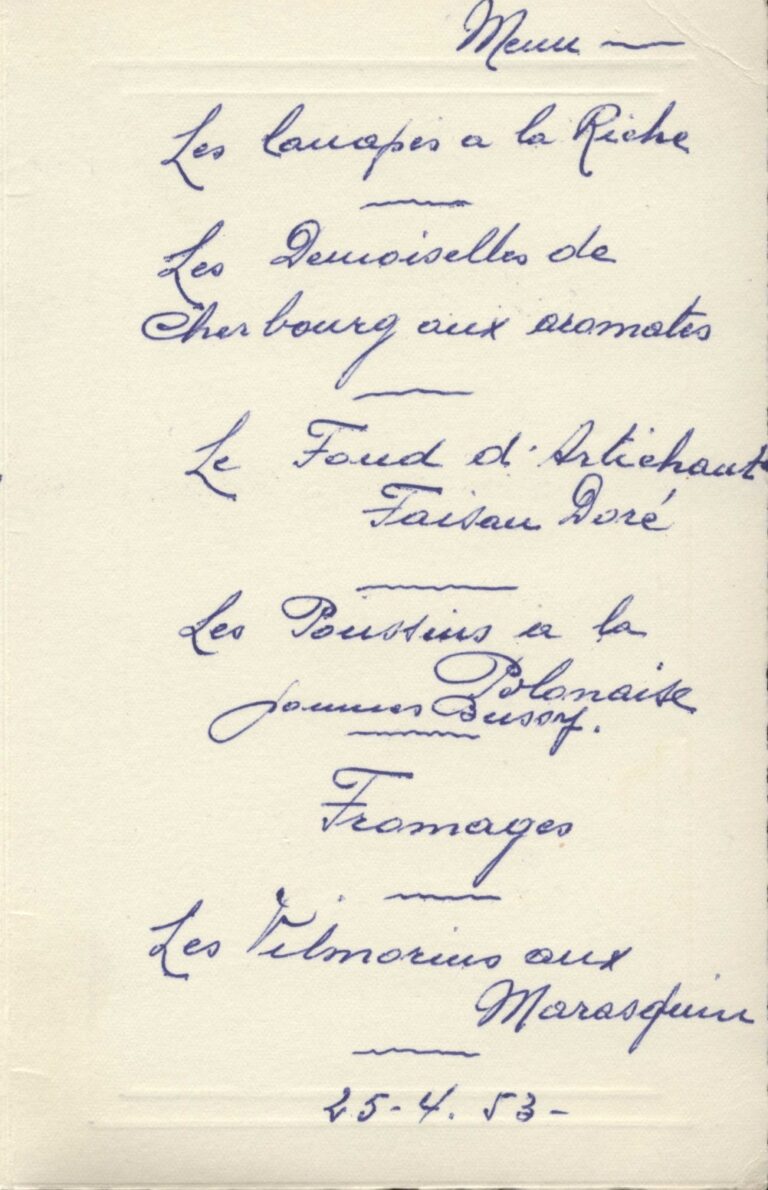 Menu —
Les Canapés a la Riche
Les Demoiselles de
Cherbourg aux aromates
Le Fond d'Artichaut
Faisan Doré
Les Poussins a la
Polonaise
pommes Bussy.
Fromages
Les Vilmorins aux
Marasquin
25-4.53-